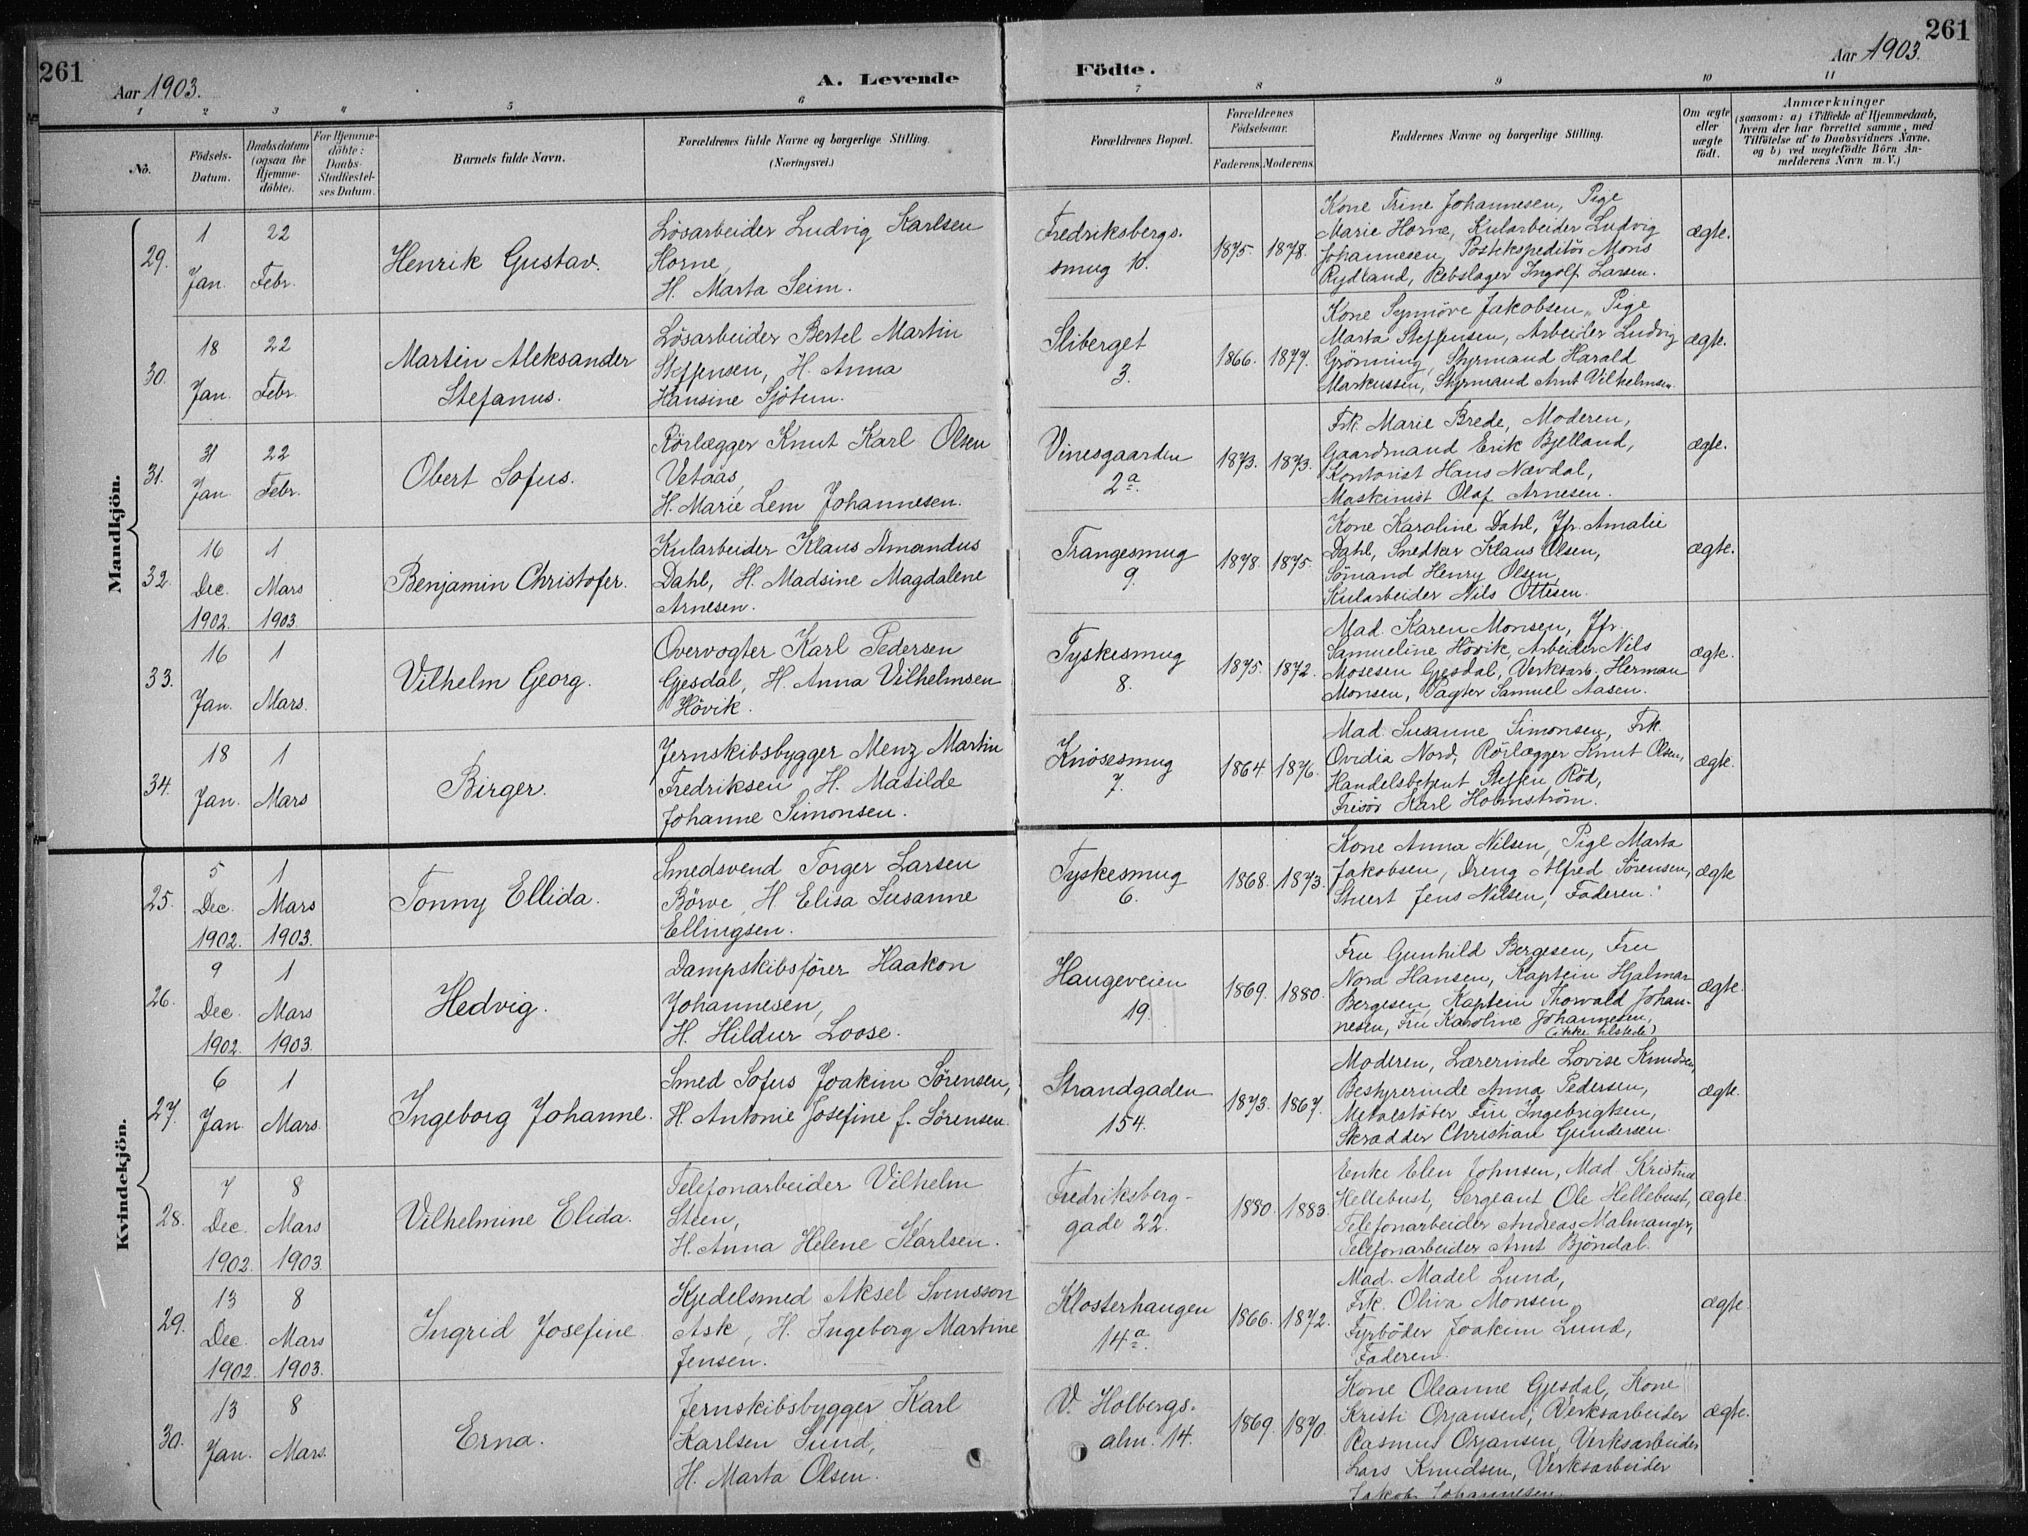 261
Aar 1903.
A. Levende
Födte.
Aar 1903.
261
1 2 3 4 5 6 7 8 9 10 11
No.
Födsels-
Datum.
Daabsdatum
(ogsaa for
Hjemme-
döbte).
For Hjemme-
döbte:
Daabs-
Stadfæstel-
ses Datum.
Barnets fulde Navn.
Forældrenes fulde Navne og borgerlige Stilling.
(Næringsvei.)
Forældrenes Bopæl.
Forældrenes
Födselsaar.
Faderens. Moderens.
Faddernes Navne og borgerlige Stilling.
Om ægte
eller
uægte
födt.
Anmærkninger
(saasom: a) i Tilfælde af Hjemmedaab,
hvem der har forrettet samme, med
Tilföielse af to Daabsvidners Navne.
og b) ved uægtefödte Börn An-
melderens Navn m. V.)
Mandkjön.
29.
1
Jan.
22
Febr.
Henrik Gustav.
Lösarbeider Ludvig Karlsen
Horne,
H. Marta Seim.
Fredriksbergs-
smug 10.
1875. 1878.
Kone Trine Johannesen, Pige
Marie Horne, Kularbeider Ludvig
Johannesen, Postekspeditör Moris
Rydland, Rebslager Ingolf Larsen.
ægte.
30.
18
Jan.
22
Febr.
Martin Aleksander
Stefanus.
Lösarbeider Bertel Martin
Steffensen, H. Anna
Hansine Sjötun.
Sliberget
3.
1866. 1877.
Kone Synnöve Jakobsen, Pige
Marta Steffensen, Arbeider Ludvig
Grönning, Styrmand Harald
Markussen, Styrmand Arnt Vilhelmsen.
ægte.
31.
31
Jan.
22
Febr.
Obert Sofus.
Rörlægger Knut Karl Olsen
Vetaas,
H. Marie Lem Johannesen.
Vinesgaarden
2a.
1873. 1873.
Frk. Marie Brede, Moderen,
Gaardmand Erik Bjelland,
Kontorist Hans Nævdal,
Maskinist Olaf Arnesen.
ægte.
32.
16
Dec.
1902.
1
Mars
1903.
Benjamin Christofer.
Kularbeider Klaus Amandus
Dahl, H. Madsine Magdalene
Arnesen.
Trangesmug
9.
1878. 1875.
Kone Karoline Dahl, Jfr. Amalie
Dahl, Snedker Klaus Olsen,
Sömand Henry Olsen,
Kularbeider Nils Ottesen.
ægte.
33.
16
Jan.
1
Mars.
Vilhelm Georg.
Overvogter Karl Pedersen
Gjesdal, H. Anna Vilhelmsen
Hövik.
Tyskesmug
8.
1875. 1872.
Mad. Karen Monsen, Jfr.
Samueline Hövik, Arbeider Nils
Mosesen Gjesdal, Verksarb. Herman
Monsen, Vagter Samuel Aasen.
ægte.
34.
18
Jan.
1
Mars
Birger.
Jernskibsbygger Menz Martin
Fredriksen, H. Matilde
Johanne Simonsen.
Knösesmug
7.
1864 1876.
Mad. Susanne Simonsen, Frk.
Ovidia Nord, Rörlægger Knut Olsen,
Handelsbetjent Steffen Röd,
Frisör Karl Holmström.
ægte.
Kvindekjön.
25.
5
Dec.
1902.
1
Mars
1903.
Tonny Ellida.
Smedsvend Torger Larsen
Börve, H. Elisa Susanne
Ellingsen.
Tyskesmug
6.
1868. 1873.
Kone Anna Nilsen, Pige Marta
Jakobsen, Dreng Alfred Sörensen,
Stuert Jens Nilsen, Faderen.
ægte
26.
9
Dec.
1902.
1
Mars
1903.
Hedvig.
Dampskibsförer Haakon
Johannesen,
H. Hildur Loose.
Haugeveien
19.
1869. 1880.
Fru Gunhild Bergesen, Fru
Nora Hansen, Kaptein Hjalmar
Bergesen, Kaptein Thorvald Johan-
nesen, Fru Karoline Johannesen,
(ikke tilstede)
ægte.
27.
6
Jan.
1
Mars.
Ingeborg Johanne.
Smed Sofus Joakim Sörensen,
H. Antonie Josefine f. Sörensen.
Strandgaden
154.
1873. 1867.
Moderen, Lærerinde Lovise Knudsen,
Bestyrerinde Anna Pedersen,
Metalstöber Fin Ingebrigtsen,
Skrædder Christian Gundersen.
ægte.
28.
7
Dec.
1902.
8
Mars
1903.
Vilhelmine Elida.
Telefonarbeider Vilhelm
Steen,
H. Anna Helene Karlsen.
Fredriksberg-
gade 22.
1880. 1883.
Enke Elen Johnsen, Mad. Kristine
Hellebust, Sergeant Ole Hellebust,
Telefonarbeider Andreas Malmanger,
Telefonarbeider Arnt Bjöndal.
ægte.
29.
13
Dec.
1902.
8
Mars
1903.
Ingrid Josefine.
Kjedelsmed Aksel Svensson
Ask, H. Ingeborg Martine
Jensen.
Klosterhaugen
14a.
1866. 1872.
Mad. Madel Lund,
Frk. Oliva Monsen,
Fyrböder Joakim Lund,
Faderen.
ægte.
30.
13
Jan.
8
Mars.
Erna.
Jernskibsbygger Karl
Karlsen Lund,
H. Marta Olsen.
V. Holbergs-
alm. 14.
1869. 1870.
Kone Oleanne Gjesdal, Kone
Kristi Orjansen, Værksarbeider
Rasmus Orjansen, Verksarbeider
Lars Knudsen, Verksarbeider
Jakob Johannesen.
ægte.